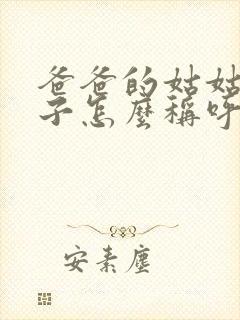 爸爸的姑姑
子怎麼稱呼
安素塵